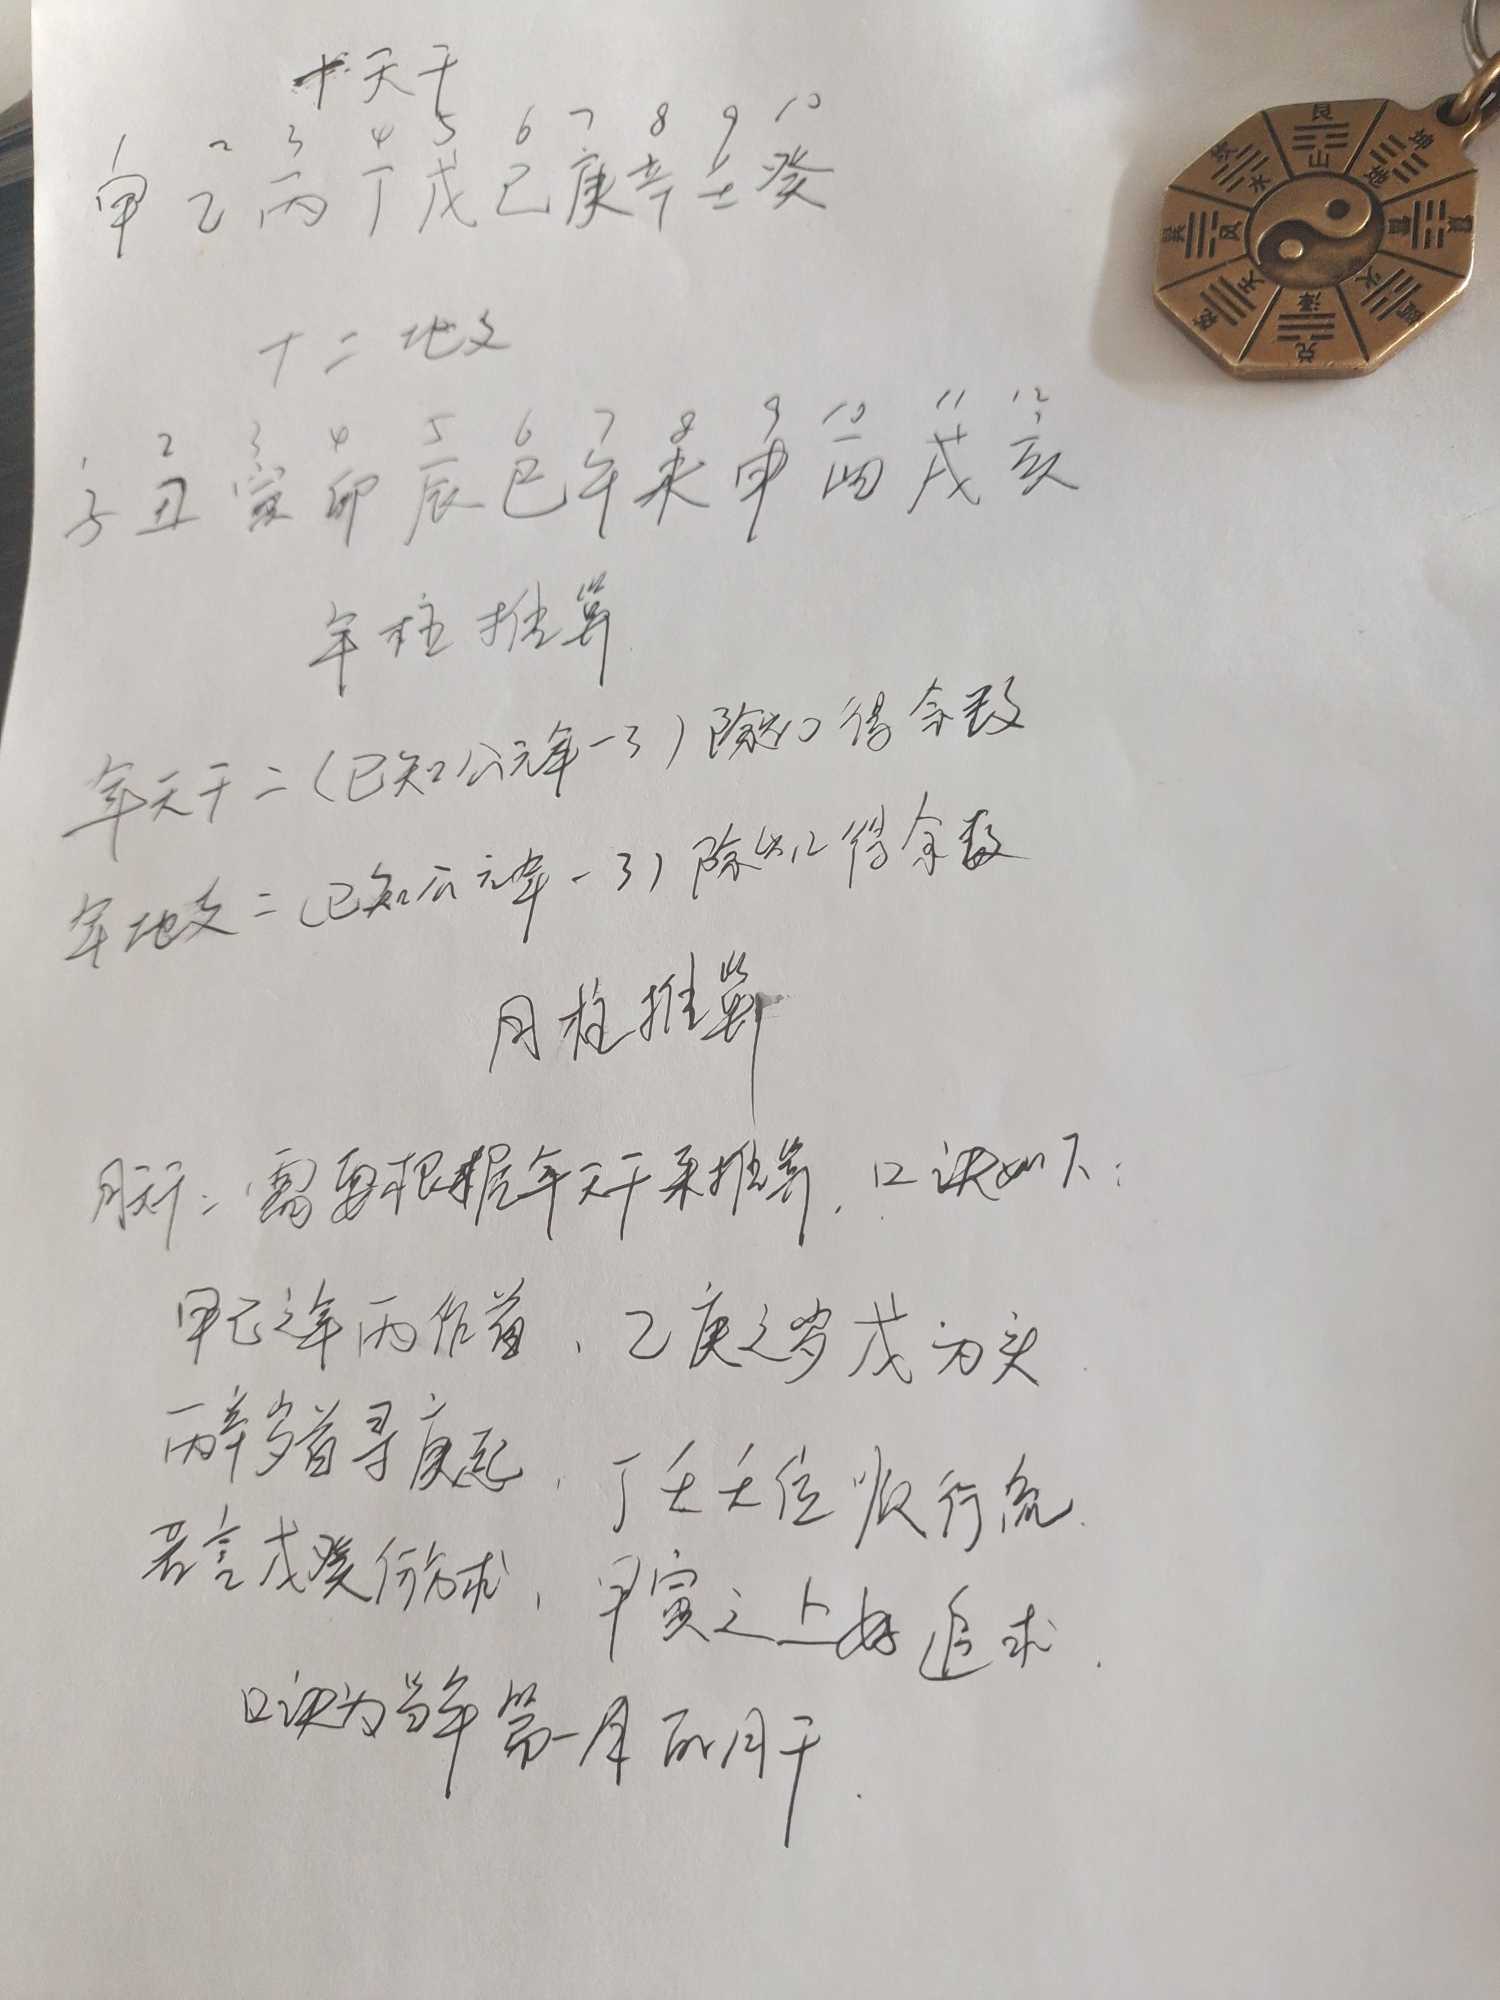 十天干
1 2 3 4 5 6 7 8 9 10
甲 乙 丙 丁 戊 己 庚 辛 壬 癸
十二地支
1 2 3 4 5 6 7 8 9 10 11 12
子 丑 寅 卯 辰 巳 午 未 申 酉 戌 亥
年柱推算
年天干=(已知公元年-3)除以10得余数
年地支=(已知公元年-3)除以12得余数
月柱推算
月天干:需要根据年天干来推算,口诀如下:
甲己之年丙作首、乙庚之岁戊为头.
丙辛岁首寻庚起,丁壬壬位顺行流.
若言戊癸何方求,甲寅之上好追求.
口诀为当年第一月的月干.
艮 山
坤 地
震 雷
离 火
兑 泽
乾 天
巽 风
坎 水